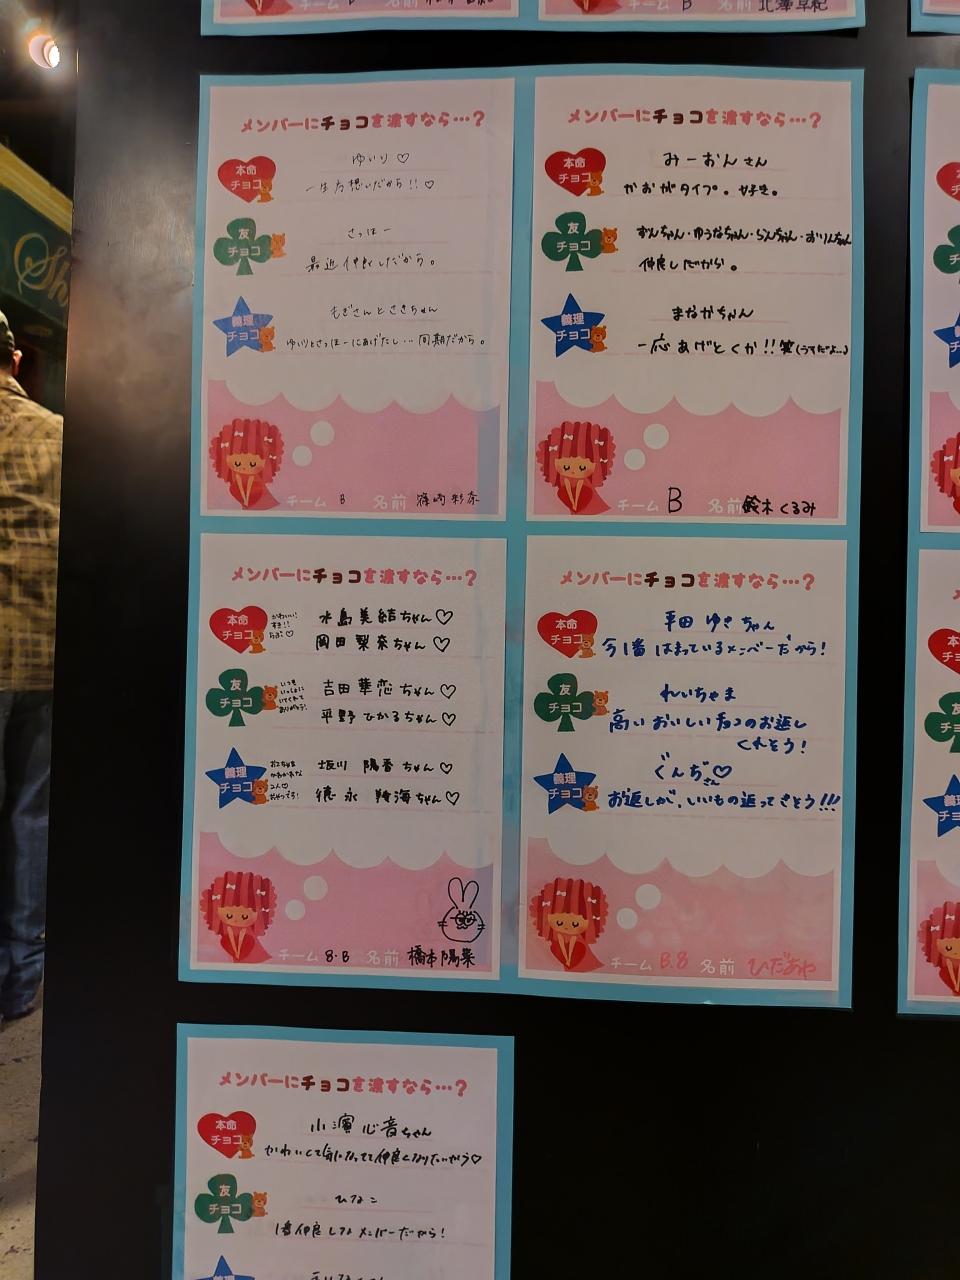 チーム B 名前
チーム B 名前 北澤早紀
Sh
メンバーにチョコを渡すなら…?
本命チョコ
ゆいり♡
一生片想いだから!!♡
友チョコ
さっほー
最近仲良しだから。
義理チョコ
もぎさんとささきちゃん
ゆいりとさっほーにあげたし…同期だから。
チーム B 名前 篠崎彩奈
メンバーにチョコを渡すなら…?
本命チョコ
みーおんさん
かおがタイプ。好き。
友チョコ
ずんちゃん・ゆうなちゃん・らんちゃん・おりんちゃん
仲良しだから。
義理チョコ
まなかちゃん
一応あげとくか!!笑(うそだよ…)
チーム B 名前 鈴木くるみ
メンバーにチョコを渡すなら…?
本命チョコ
かわいい!
すき!!
水島美結ちゃん♡
岡田梨奈ちゃん♡
友チョコ
いつも
いっしょに
いてくれて
ありがとう!
吉田華恋ちゃん♡
平野ひかるちゃん♡
義理チョコ
2人♡
坂川陽香ちゃん♡
徳永羚海ちゃん♡
チーム 8・B 名前 橋本陽菜
メンバーにチョコを渡すなら…?
本命チョコ
平田ゆきちゃん
今1番はまっているメンバーだから!
友チョコ
れいちゃま
高いおいしいチョコのお返し
くれそう!
義理チョコ
ぐんぢさん♡
お返しが、いいもの返ってきそう!!!
チーム B.8 名前 ひだあや
メンバーにチョコを渡すなら…?
本命チョコ
小濵心音ちゃん
かわいくて気になってて仲良くなりたいから♡
友チョコ
ひなこ
1番仲良しなメンバーだから!
義理